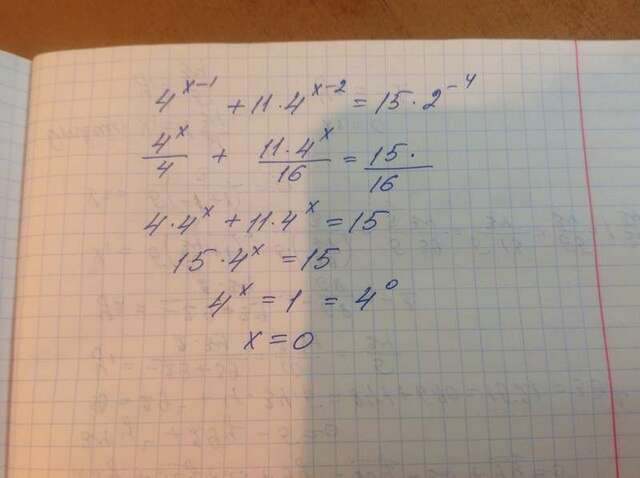 4^{x-1} + 11 · 4^{x-2} = 15 · 2^{-4}
\frac{4^x}{4} + \frac{11 · 4^x}{16} = \frac{15 ·}{16}
4 · 4^x + 11 · 4^x = 15
15 · 4^x = 15
4^x = 1 = 4^0
x = 0